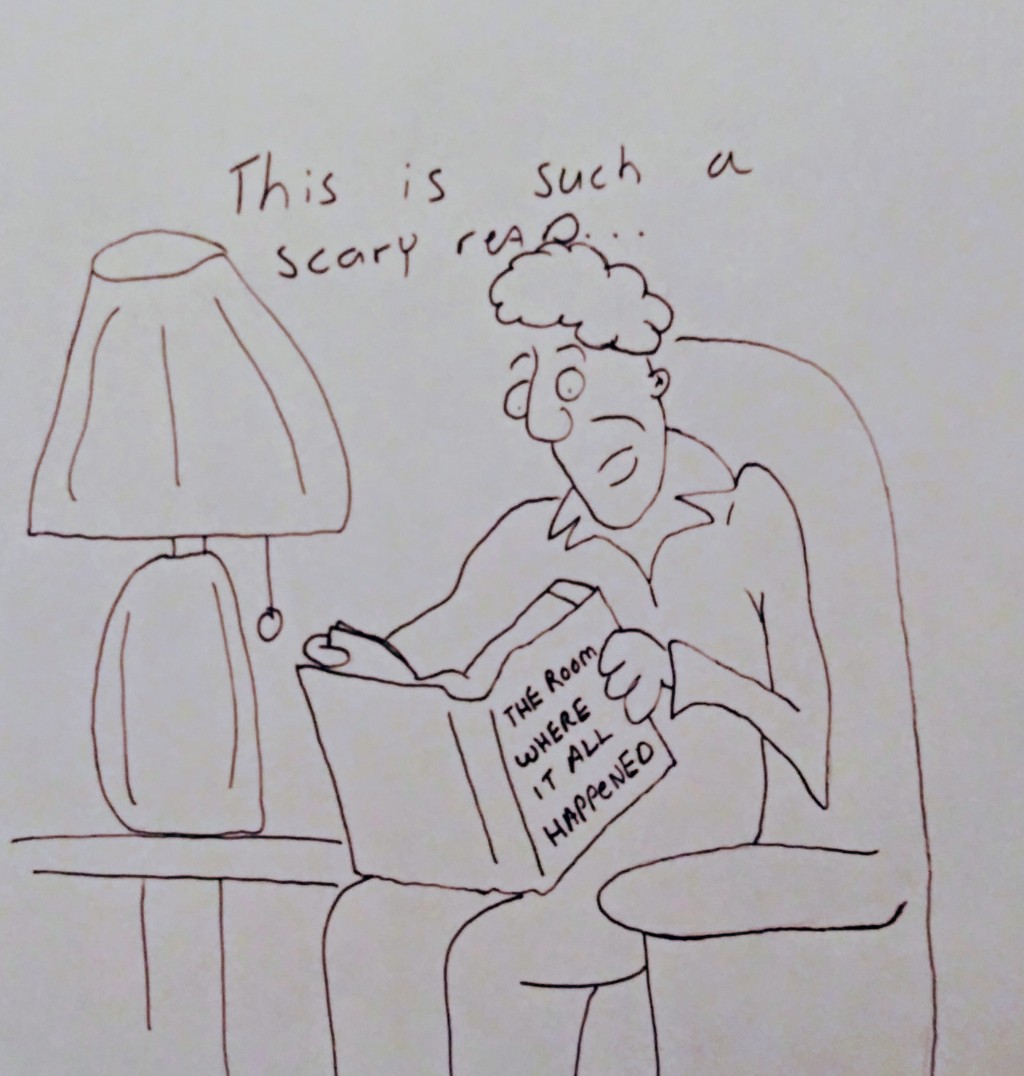 This is such a
scary read...
THE ROOM
WHERE
IT ALL
HAPPeNED